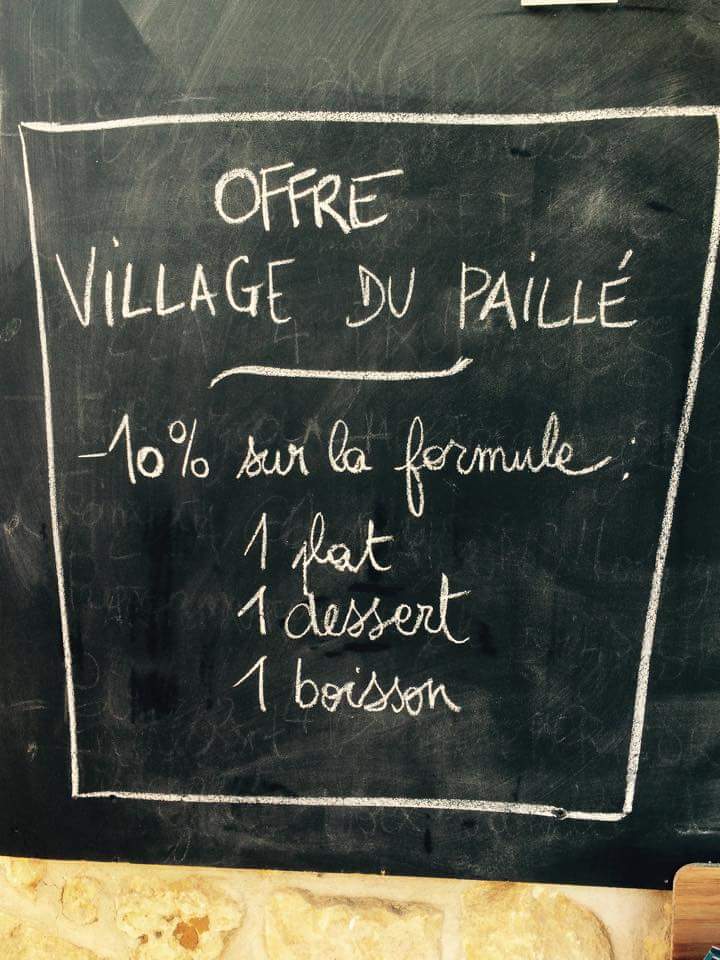 OFFRE
VILLAGE DU PAILLÉ
-10% sur la formule :
1 plat
1 dessert
1 boisson